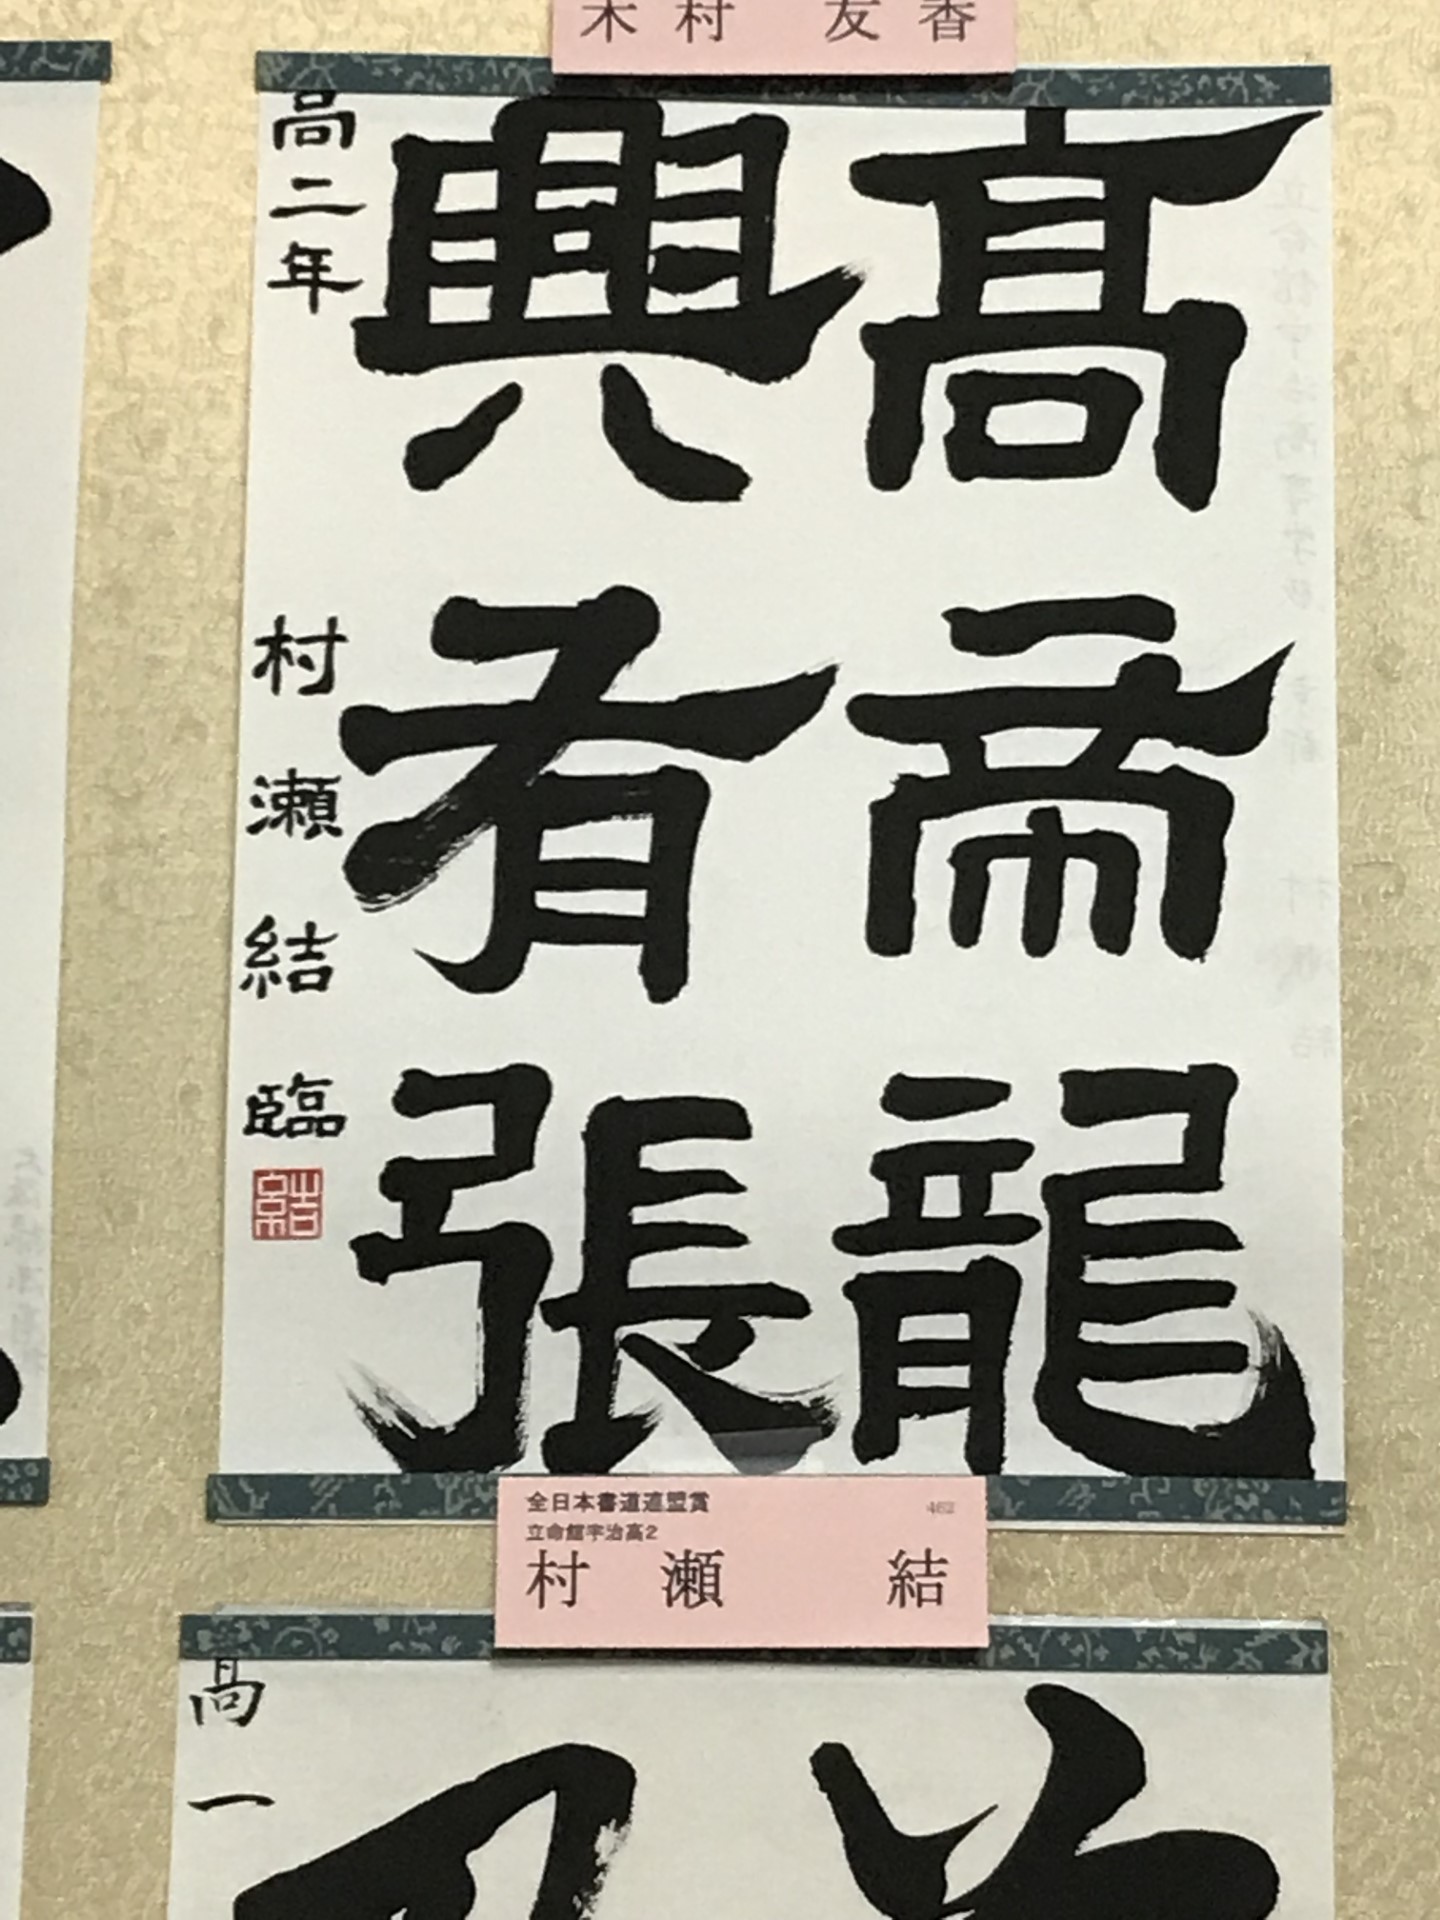 木村 友香
高帝龍
興有張
高二年 村瀬結臨
結
全日本書道連盟賞
462
立命館宇治高2
村瀬 結
高一